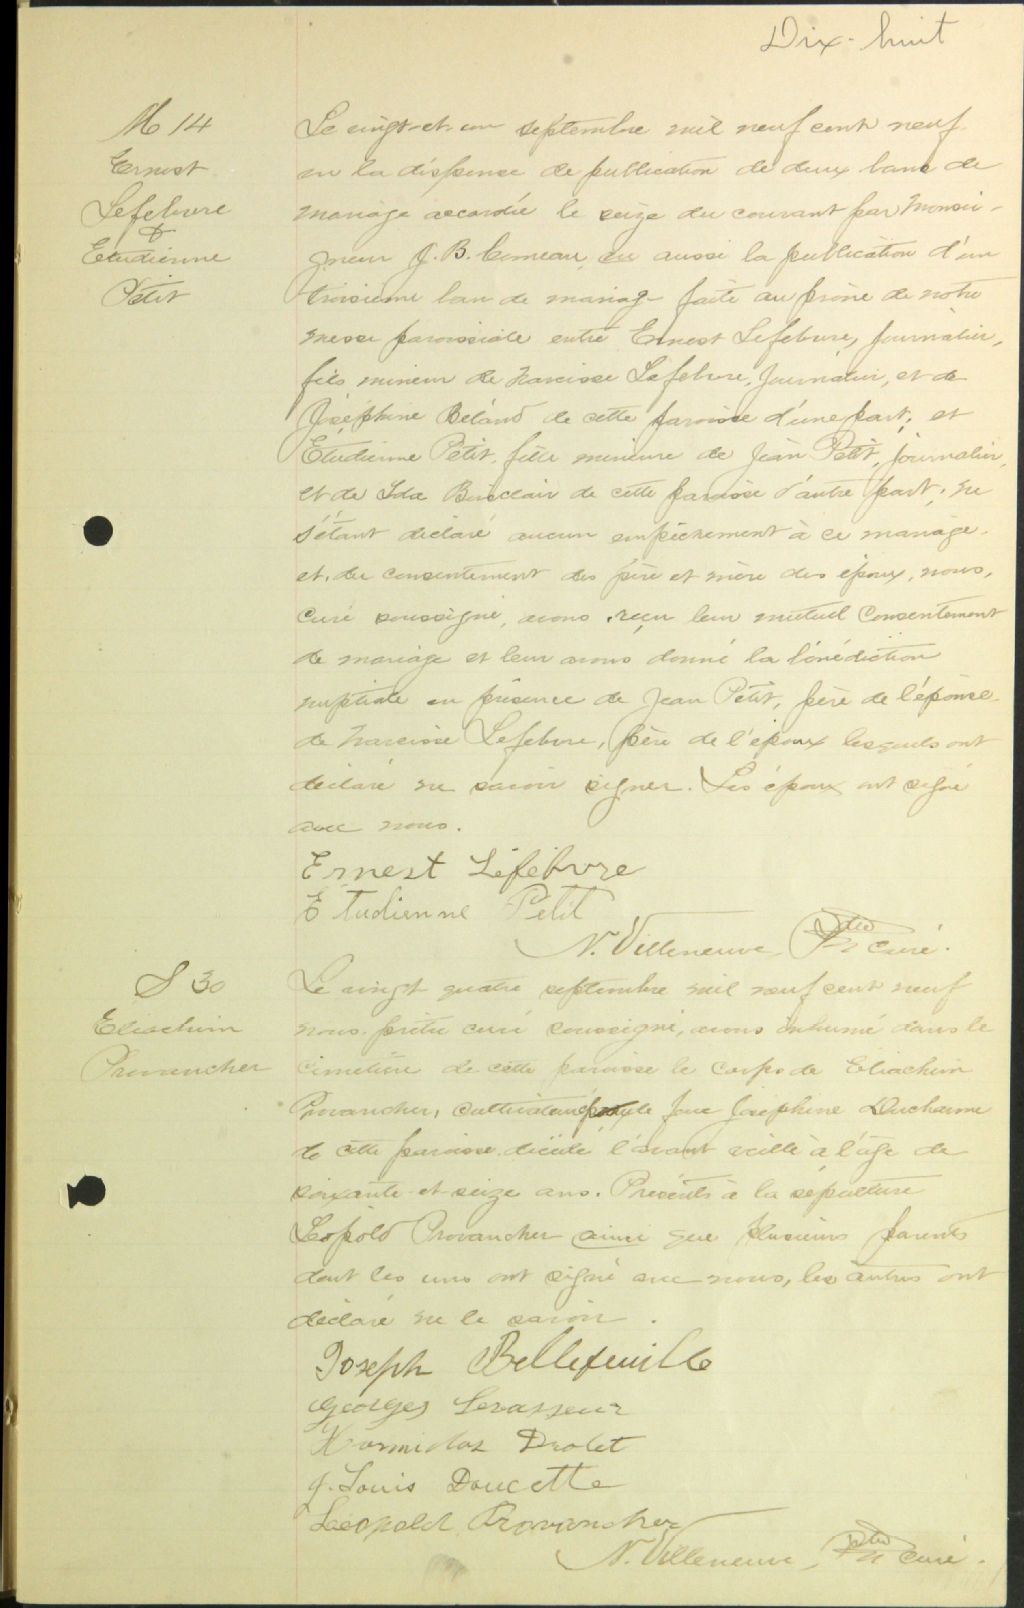 Dix-huit
M 14
Ernest
Lefebvre
&
Etudienne
Petit
Le vingt-et-un septembre mil neuf cent neuf
vu la dispense de publication de deux bans de
mariage accordée le seize du courant par Monsei-
gneur J. B. Comeau, vu aussi la publication d'un
troisième ban de mariage faite au prône de notre
messe paroissiale entre Ernest Lefebvre, journalier,
fils mineur de Narcisse Lefebvre, journalier, et de
Joséphine Béland de cette paroisse d'une part; et
Etudienne Petit, fille mineure de Jean Petit, journalier,
et de Ida Boisclair de cette paroisse d'autre part; ne
s'étant déclaré aucun empêchement à ce mariage
et du consentement des père et mère des époux, nous,
curé soussigné, avons reçu leur mutuel consentement
de mariage et leur avons donné la bénédiction
nuptiale en présence de Jean Petit, père de l'épouse
de Narcisse Lefebvre, père de l'époux lesquels ont
déclaré ne savoir signer. Les époux ont signé
avec nous.
Ernest Lefebvre
Etudienne Petit
N. Villeneuve Ptre curé.
S 30
Eliachim
Provancher
Le vingt quatre septembre mil neuf cent neuf
nous prêtre curé soussigné, avons inhumé dans le
cimetière de cette paroisse le corps de Eliachim
Provancher, cultivateur, de feue Joséphine Ducharme
de cette paroisse, décédé l'avant veille à l'âge de
soixante-et-seize ans. Présents à la sépulture
Léopold Provancher ainsi que plusieurs parents
dont les uns ont signé avec nous, les autres ont
déclaré ne le savoir.
Joseph Bellefeuille
Georges Levasseur
Hormidas Drolet
J. Louis Doucette
Léopold Provancher
N. Villeneuve, Ptre curé.